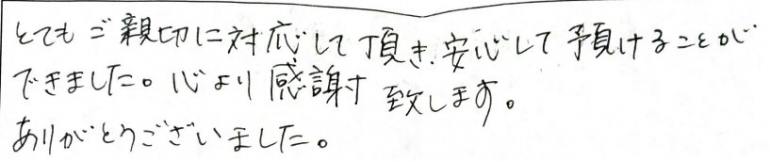 とてもご親切に対応して頂き、安心して予預けることが
できました。心より感謝致します。
ありがとうございました。